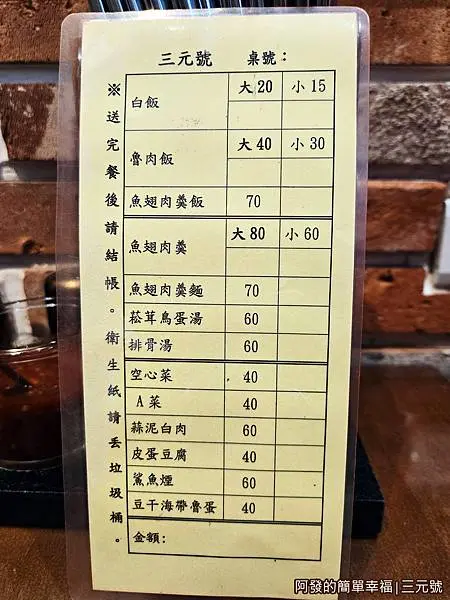 三元號 桌號：
※送完餐後請結帳。衛生紙請丟垃圾桶。
白飯 大20 小15
魯肉飯 大40 小30
魚翅肉羹飯 70
魚翅肉羹 大80 小60
魚翅肉羹麵 70
菘茸鳥蛋湯 60
排骨湯 60
空心菜 40
A菜 40
蒜泥白肉 60
皮蛋豆腐 40
鯊魚煙 60
豆干海帶魯蛋 40
金額：
阿發的簡單幸福|三元號